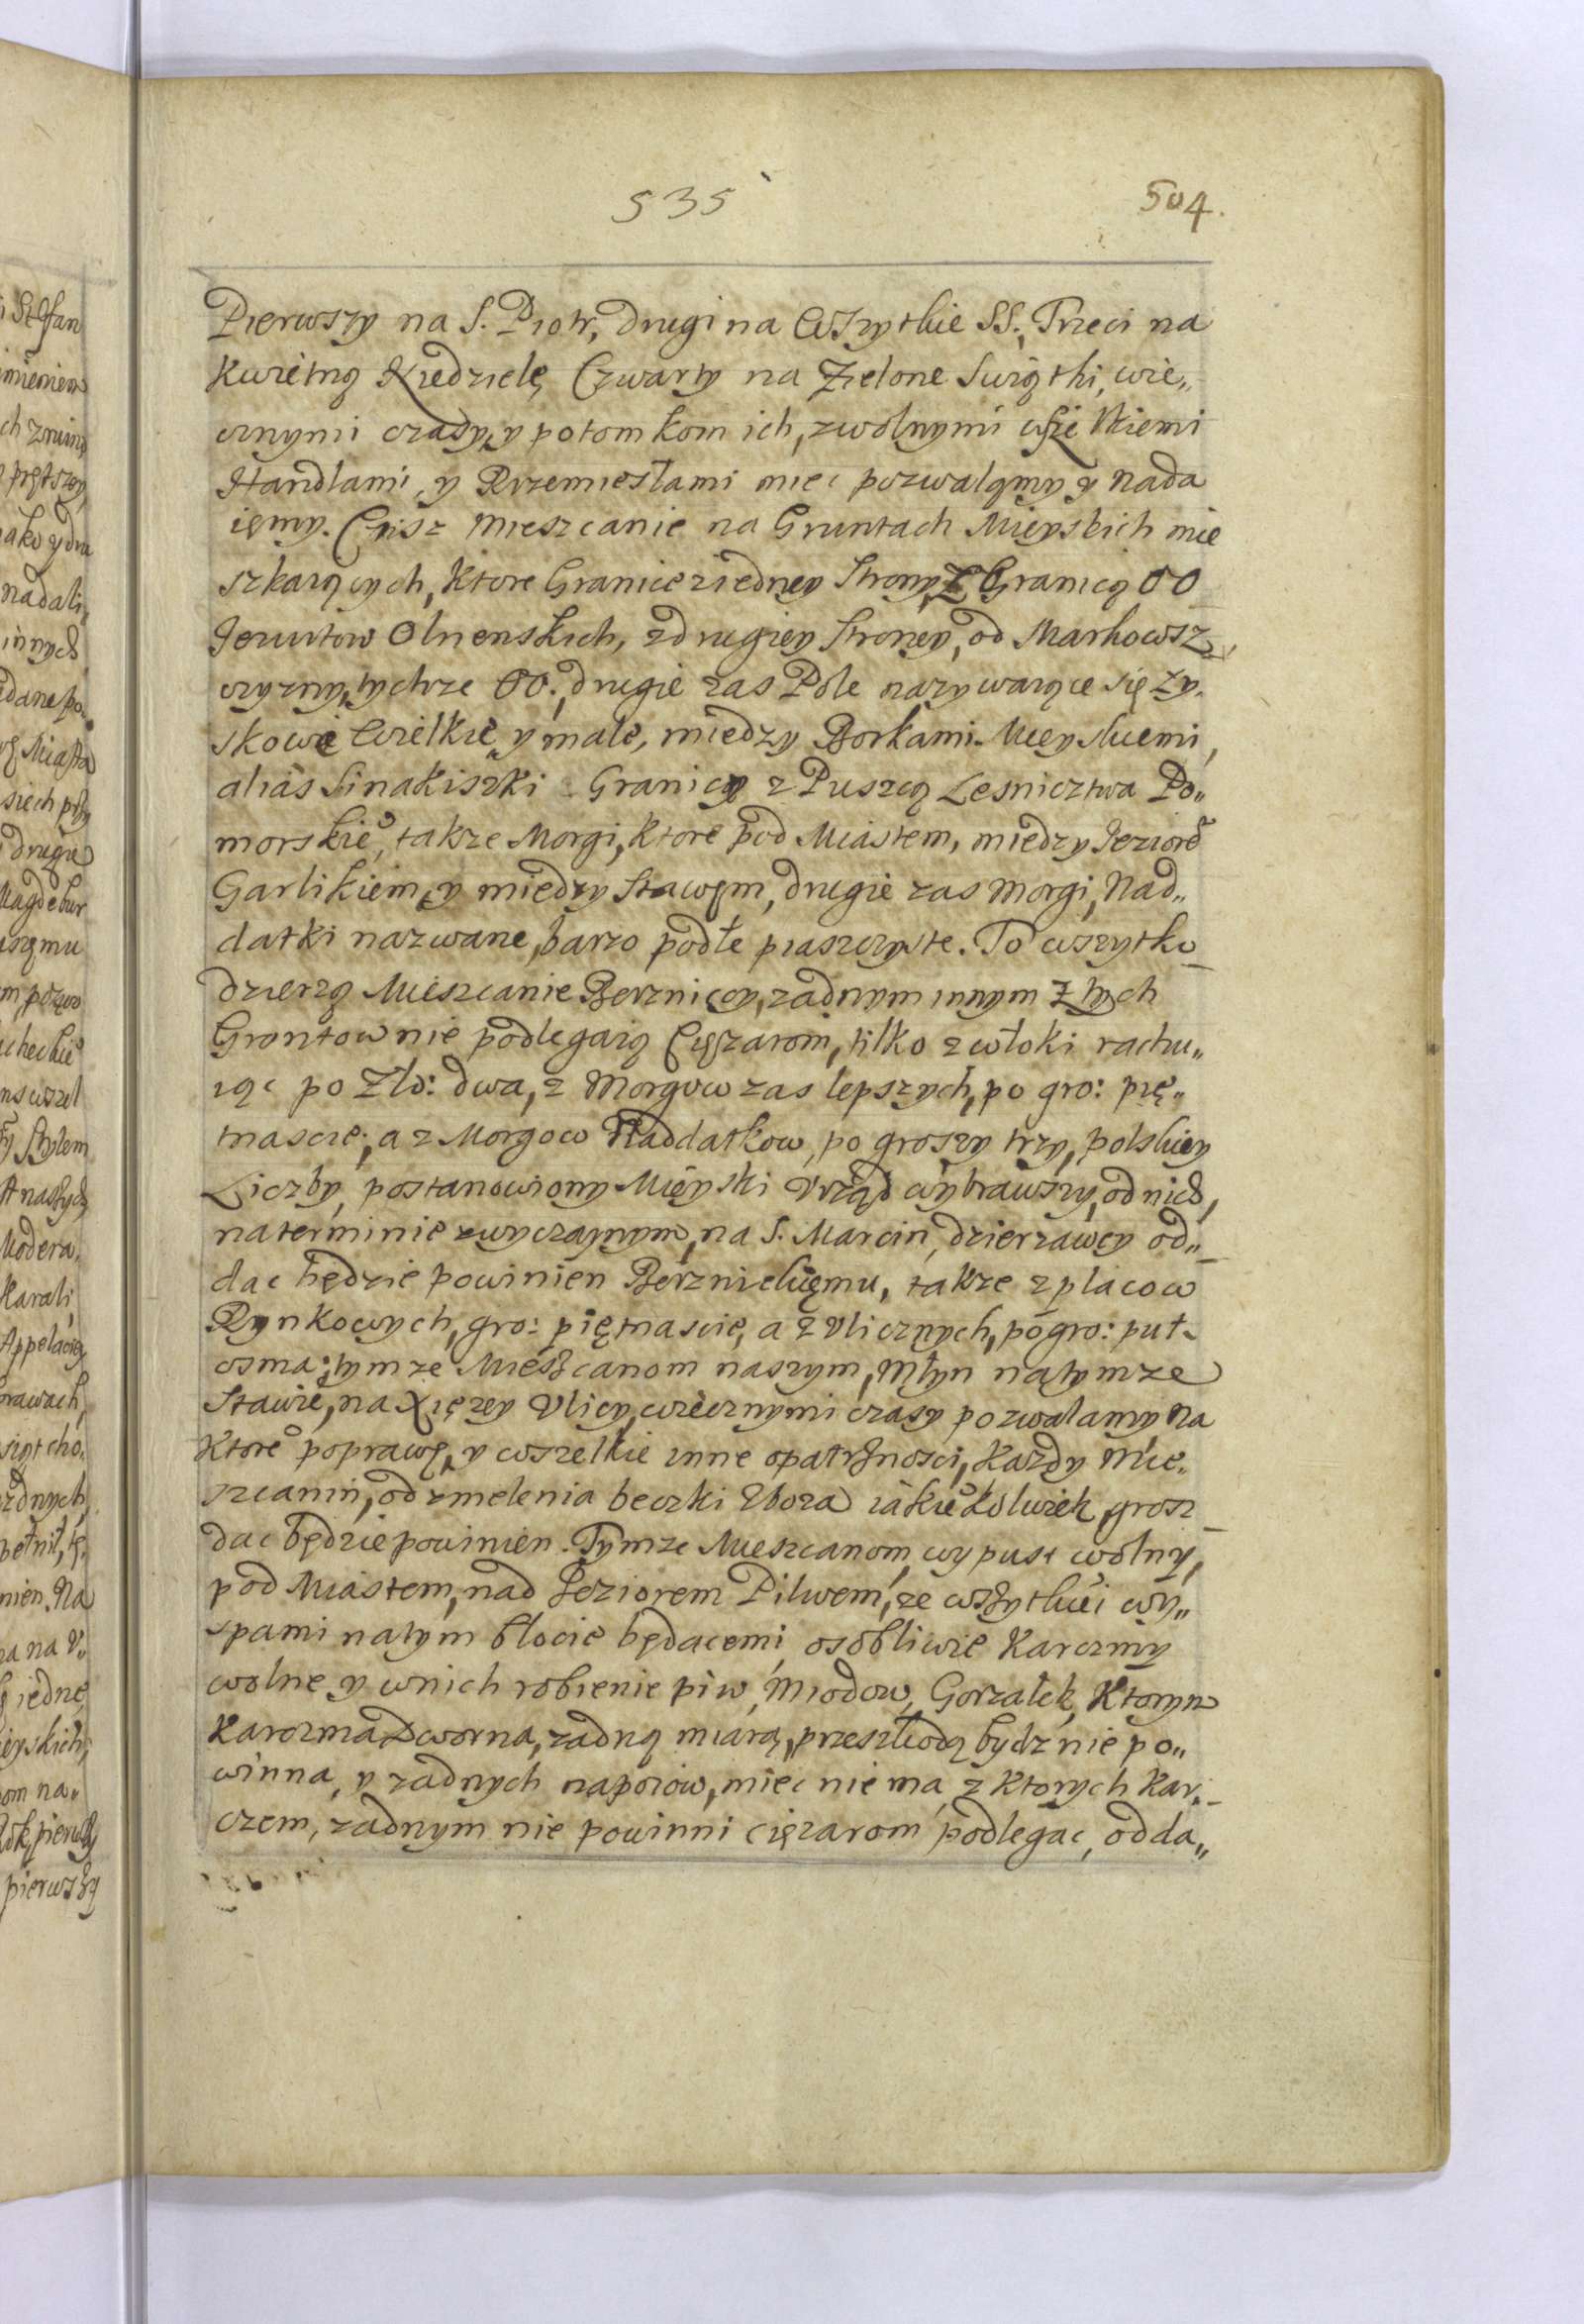 535
504.
Pierwszy na S. Piotr, drugi na Wszytkie SS., Trzeci na
Kwietną Niedzielę Czwarty na Zielone Swiątki, wie„
cznymi czasy, y potomkom ich, zwolnymi wsze lkiemi
Handlami, y Rzemiesłami miec pozwalamy y nada
iemy. Ciisz Mieszcanie na Gruntach Mieyskich mie
szkaiących, ktore Granice ziedney Strony, Z Granicą OO
Jezuitow Olnenskich, zdrugiey Stroney, od Markowsz
czyzny, tychze OO.; drugie zas Pole nazywaiące się Zy„
skowe Wielkie y małe, miedzy Borkami Mieyskiemi,
alias Sinakiszki Granicą z Puszcą Lesnicztwa Po„
morskieo, takze Morgi, ktore pod Miastem, miedzy Jeziorē
Garlikiem, y miedzy Stawem, drugie zas Morgi, Nad„
datki nazwane, barzo podłe piaszczyste. To wszytko
dzierzą Mieszcanie Berznicey, zadnym innym Z tych
Grontow nie podlegaią Cięzarom, tilko z włoki rachu„
iąc po Zło: dwa, z Morgow zas lepszych, po gro: pię„
tnascie, a z Morgow Naddatkow, po groszy trzy, polskiey
Liczby, postanowiony Mieyski Vrząd wybrawszy, od nich,
na terminie zwyczaynym, na S. Marcin, dzierzawcy od„
dac będzie powinien Berznickiemu, takze z placow
Rynkowych, gro: piętnascie, a z Vlicznych, po gro: puł„
osma; tymze Mieszcanom naszym, Młyn natymze
Stawie, na Xięzey Vlicy, wiecznymi czasy pozwalamy Na
Ktoreo poprawę, y wszelkie inne opatrznosci, kazdy Mie„
szcanin, od zmelenia beczki Zboza iakieokolwiek, grosz
dac będzie powinien. Tymze Mieszcanom, wypust wolny,
pod Miastem, nad Jeziorem Pilwem, ze wszytkiēi wy„
spami natym błocie będacemi, osobliwie Karczmy
wolne y wnich robienie piw, Miodow, Gorzałek, Ktorym
Karczma Dworna, zadną miarą, przeszkodą bydz nie po„
winna, y zadnych napoiow, miec nie ma, z Ktorych Kar„
czem, zadnym nie powinni cięzarom podlegac, odda„